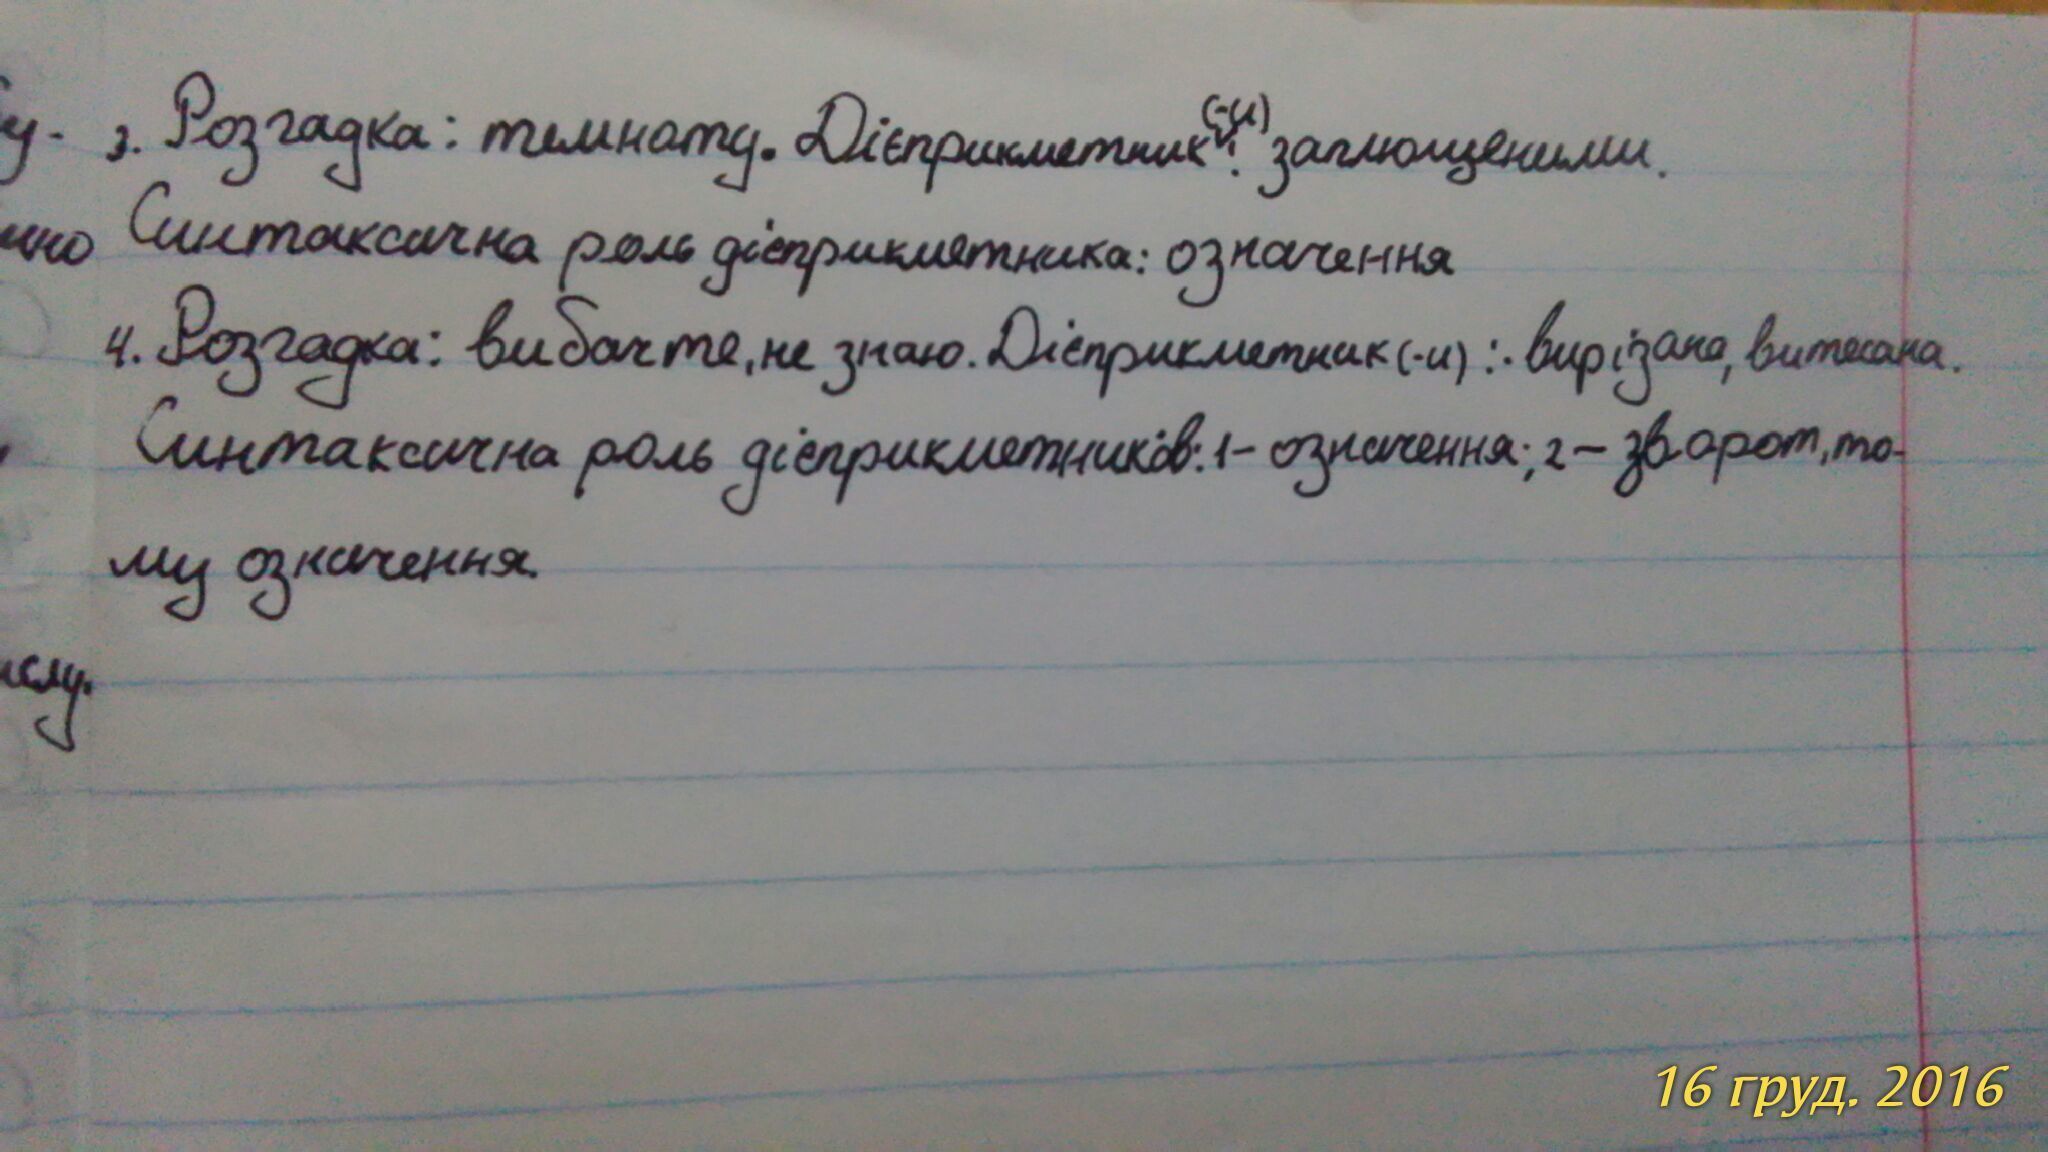 3. Розгадка: темноту. Дієприкметник(-и): заплющеними.
Синтаксична роль дієприкметника: означення
4. Розгадка: вибачте, не знаю. Дієприкметник(-и): вирізана, витесана.
Синтаксична роль дієприкметників: 1 – означення; 2 – зворот, то-
му означення.
16 груд. 2016